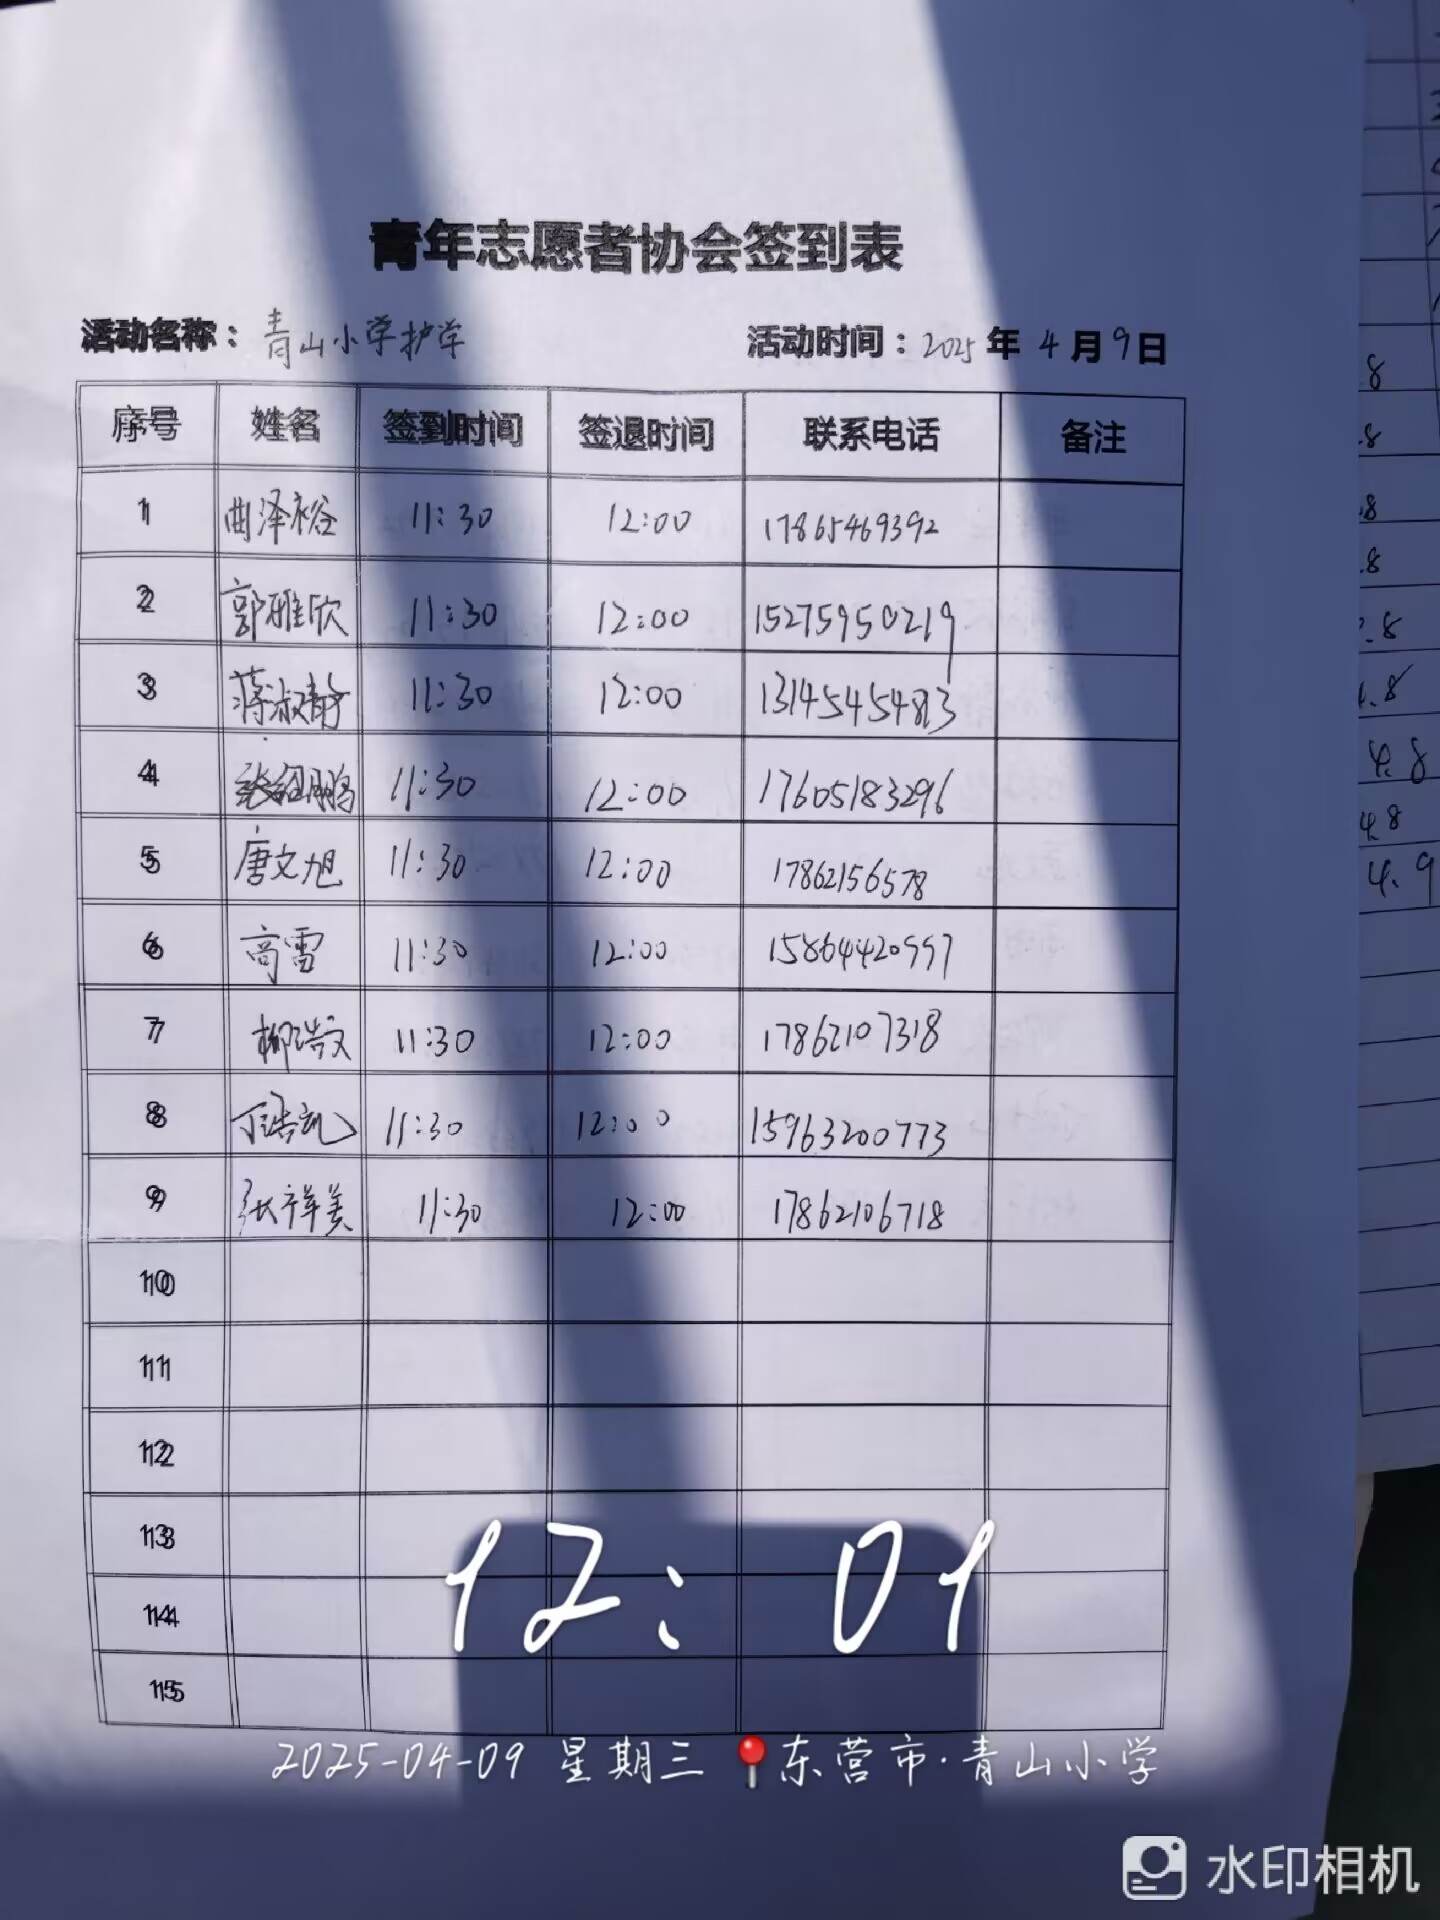 青年志愿者协会签到表
活动名称：青山小学护学 活动时间：2025年4月9日
序号 姓名 签到时间 签退时间 联系电话 备注
1 曲泽裕 11:30 12:00 17865469392
2 郭雅欣 11:30 12:00 15275950219
3 蒋淑静 11:30 12:00 13145454813
4 11:30 12:00 17605183296
5 唐文旭 11:30 12:00 17862156578
6 高雷 11:30 12:00 15864420997
7 柳浩文 11:30 12:00 17862107318
8 丁浩礼 11:30 12:00 15963200773
9 张祥美 11:30 12:00 17862106718
10
11
12
13
14
15
.8
.8
.8
.8
.8
4.8
4.8
4.8
4.9
12:01
2025-04-09 星期三 东营市·青山小学
水印相机